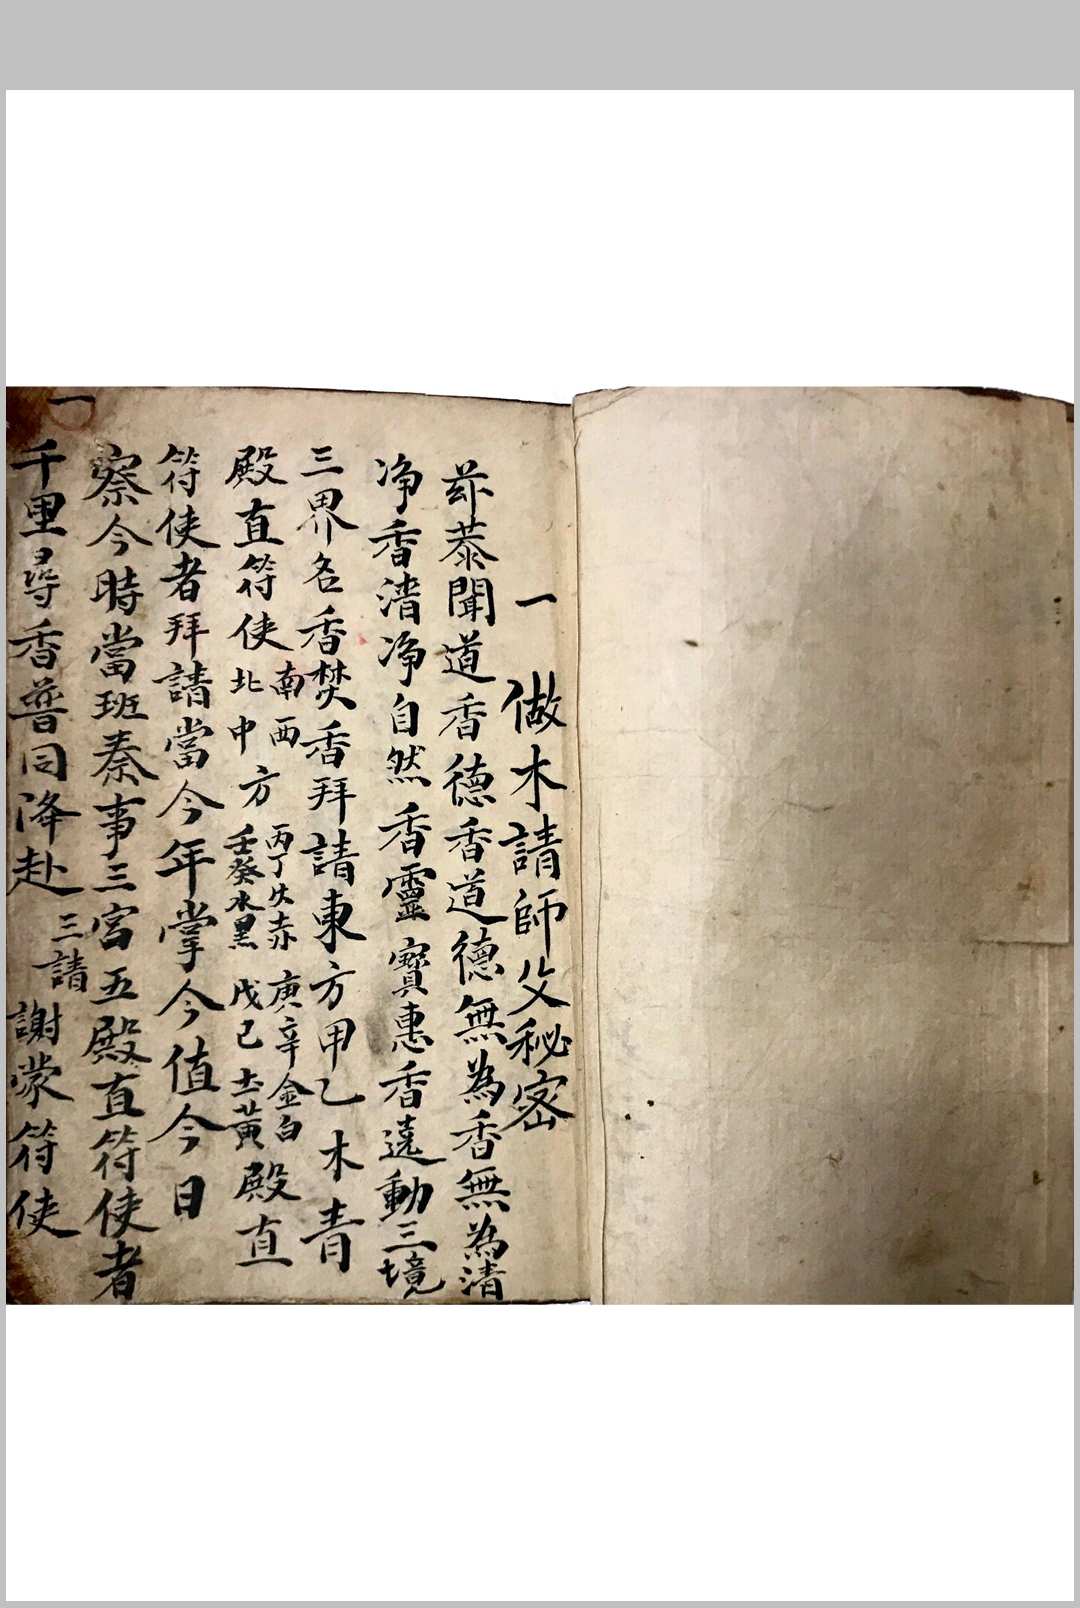 一 做木請師父秘密
聞道香德香道德無為香無為清
净香清净自然香靈寶惠香遠動三境
三界各香焚香拜請東方甲乙木青
殿直符使南西北中方丙丁火赤庚辛金白壬癸水黑戊己土黃殿直
符使者拜請當今年掌今值今日
察今時當班奏事三宮五殿直符使者
千里尋香普同降赴三請謝蒙符使
一